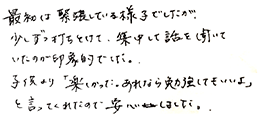 最初は緊張している様子でしたが
少しずつ打ちとけて、集中して話を聞いて
いたのが印象的でした。
子供より「楽しかった。あれなら勉強してもいいよ」
と言ってくれたので安心しました。